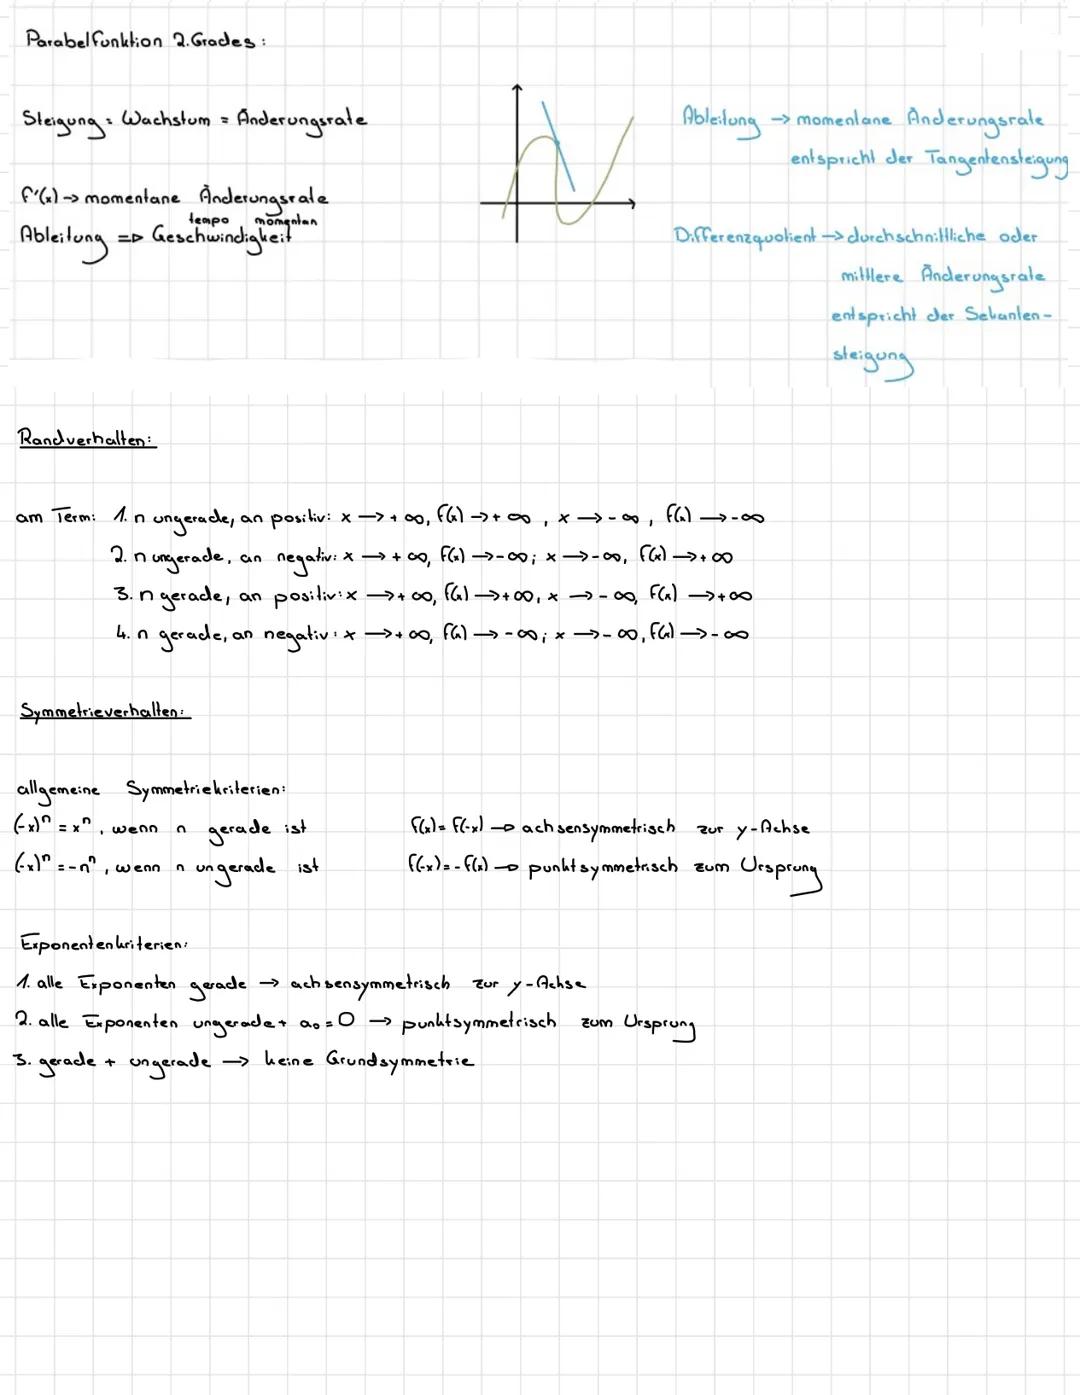 Parabelfunktion 2.Grades:
Steigung = Wachstum = Änderungsrate
f'(x) → momentane Änderungsrate
tempo momentan
Ableitung => Geschwindigkeit
Ableitung → momentane Änderungsrate
entspricht der Tangentensteigung
Differenzquotient → durchschnittliche oder
mittlere Änderungsrate
entspricht der Sekanten-
steigung
Randverhalten:
am Term: 1. n ungerade, an positiv: x → + ∞, f(x) → + ∞, x → - ∞, f(x) → - ∞
2. n ungerade, an negativ: x → + ∞, f(x) → - ∞; x → - ∞, f(x) → + ∞
3. n gerade, an positiv: x → + ∞, f(x) → + ∞, x → - ∞, f(x) → + ∞
4. n gerade, an negativ: x → + ∞, f(x) → - ∞; x → - ∞, f(x) → - ∞
Symmetrieverhalten:
allgemeine Symmetriekriterien:
(-x)ⁿ = xⁿ, wenn n gerade ist
f(x) = f(-x) → achsensymmetrisch zur y-Achse
(-x)ⁿ = -nⁿ, wenn n ungerade ist
f(-x) = -f(x) → punktsymmetrisch zum Ursprung
Exponentenkriterien:
1. alle Exponenten gerade → achsensymmetrisch zur y-Achse
2. alle Exponenten ungerade + a₀ = 0 → punktsymmetrisch zum Ursprung
3. gerade + ungerade → keine Grundsymmetrie